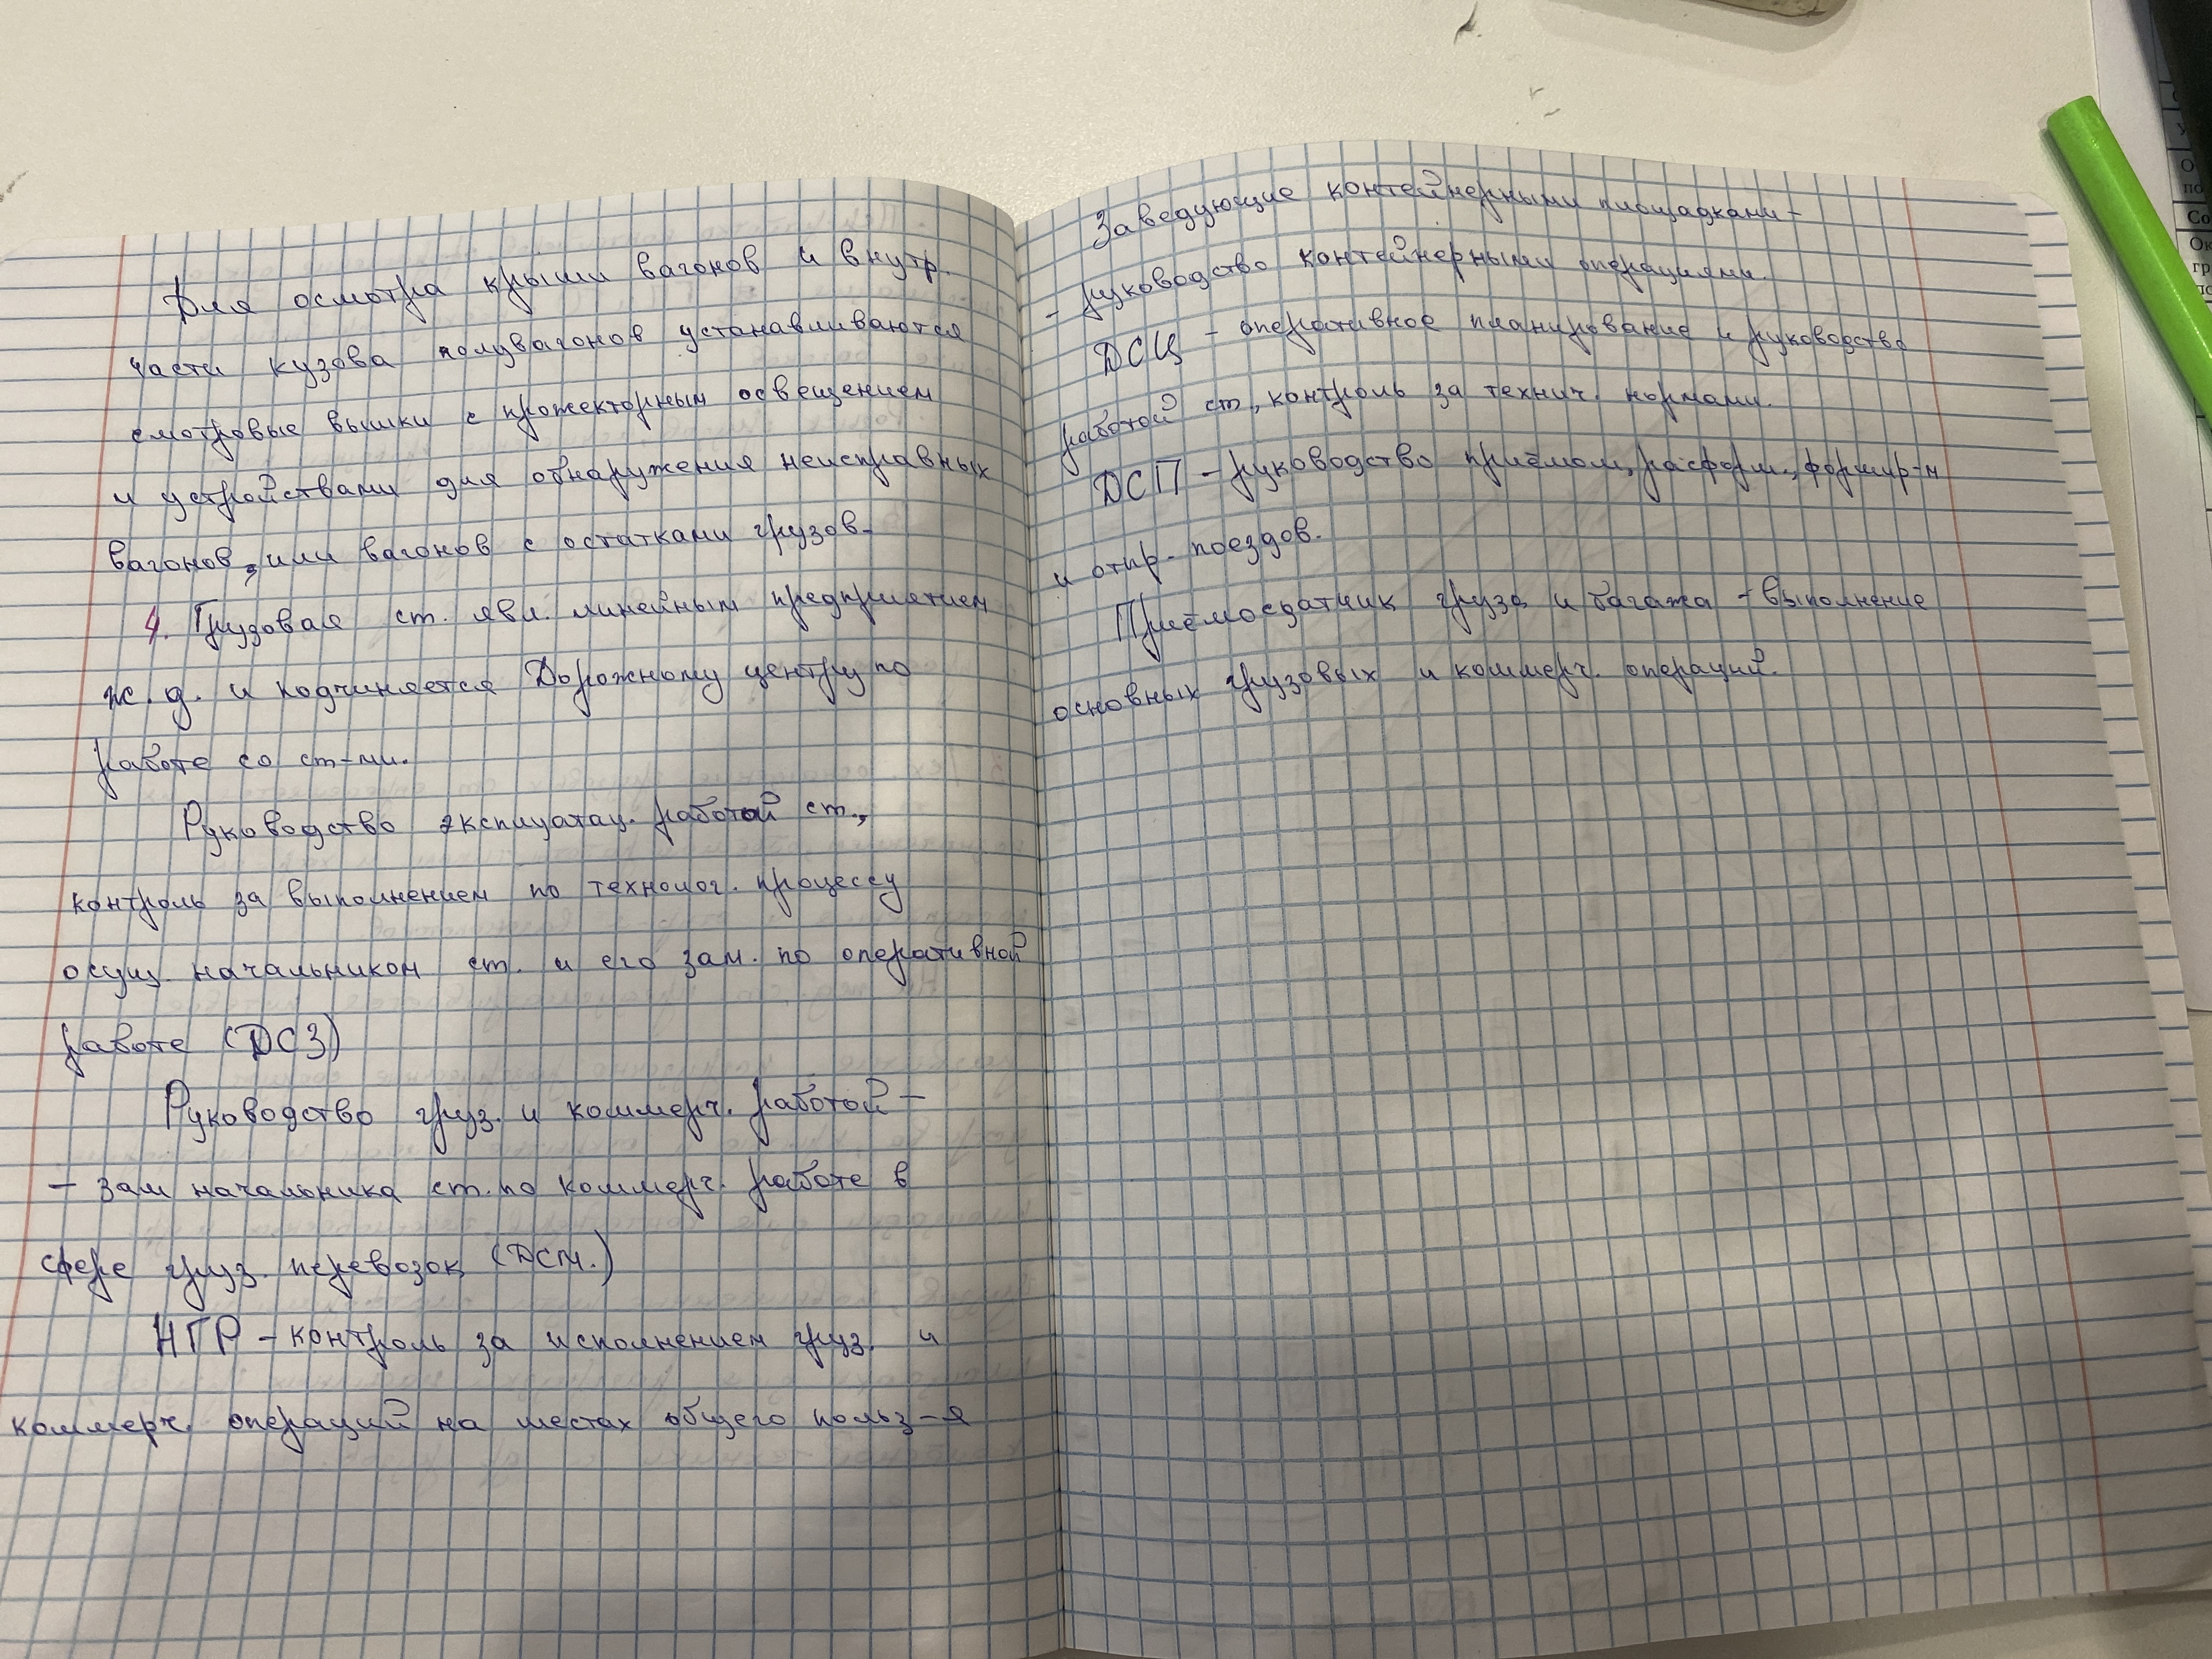 Для осмотра крыши вагонов и внутр.
части кузова полувагонов устанавливаются
смотровые вышки с прожекторным освещением
и устройствами для обнаружения неисправных
вагонов, или вагонов с остатками грузов.
4. Грузовая ст. явл. линейным предприятием
ж.д. и подчиняется Дорожному центру по
работе со ст-ми.
Руководство эксплуатац. работой ст.,
контроль за выполнением по технолог. процессу
осущ. начальником ст. и его зам. по оперативной
работе (ДСЗ)
Руководство груз. и коммерч. работой -
- зам начальника ст. по коммерч. работе в
сфере груз. перевозок (ДСМ.)
НГР - контроль за исполнением груз. и
коммерч. операций на местах общего польз-я
Заведующие контейнерными площадками -
- руководство контейнерными операциями.
ДСЦ - оперативное планирование и руководство
работой ст, контроль за технич. нормами.
ДСП - руководство приёмом, расформ., формир-м
и отпр. поездов.
Приёмосдатчик груза и багажа - выполнение
основных грузовых и коммерч. операций.